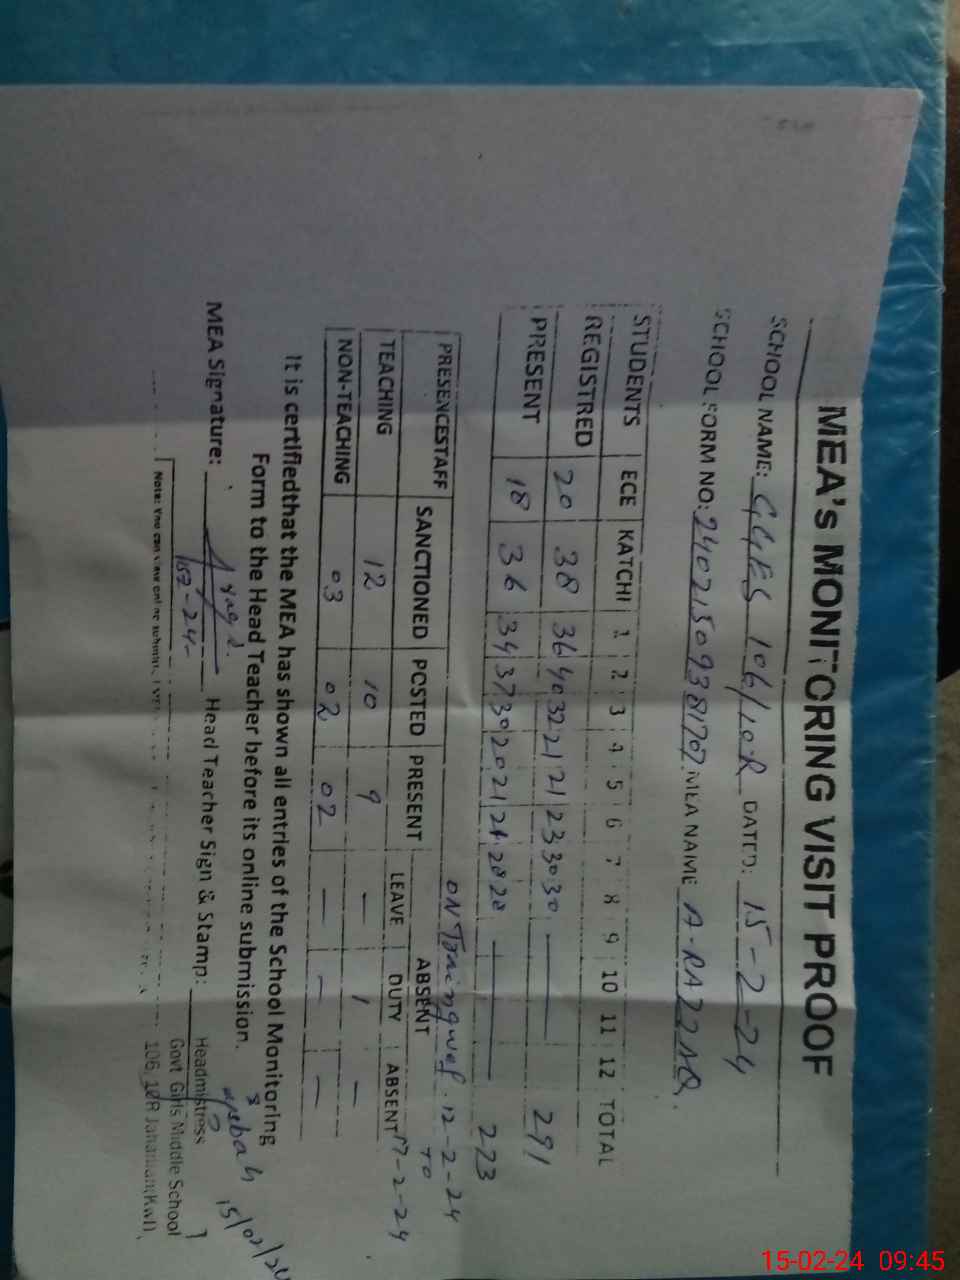 MEA's MONITORING VISIT PROOF
SCHOOL NAME: GGES 106/10-R DATED: 15-2-24
SCHOOL FORM NO: MEA NAME A-RAZZAQ.
STUDENTS ECE KATCHI 1 2 3 4 5 6 7 8 9 10 11 12 TOTAL
REGISTRED 20 38 36 40 32 21 21 23 30 30 — 291
PRESENT 18 36 34 37 30 20 21 — 273
ON Training wef. 12-2-24
TO
17-2-24
PRESENCESTAFF SANCTIONED POSTED PRESENT ABSENT
LEAVE DUTY ABSENT
TEACHING 12 10 9 — 1 —
NON-TEACHING 03 02 02 — — —
It is certifiedthat the MEA has shown all entries of the School Monitoring
Form to the Head Teacher before its online submission.
MEA Signature: Head Teacher Sign & Stamp:
15/02/24
Headmistress
Govt Girls Middle School
106 10R Jahanian(Kwl)
Note: You can view online
15-02-24 09:45